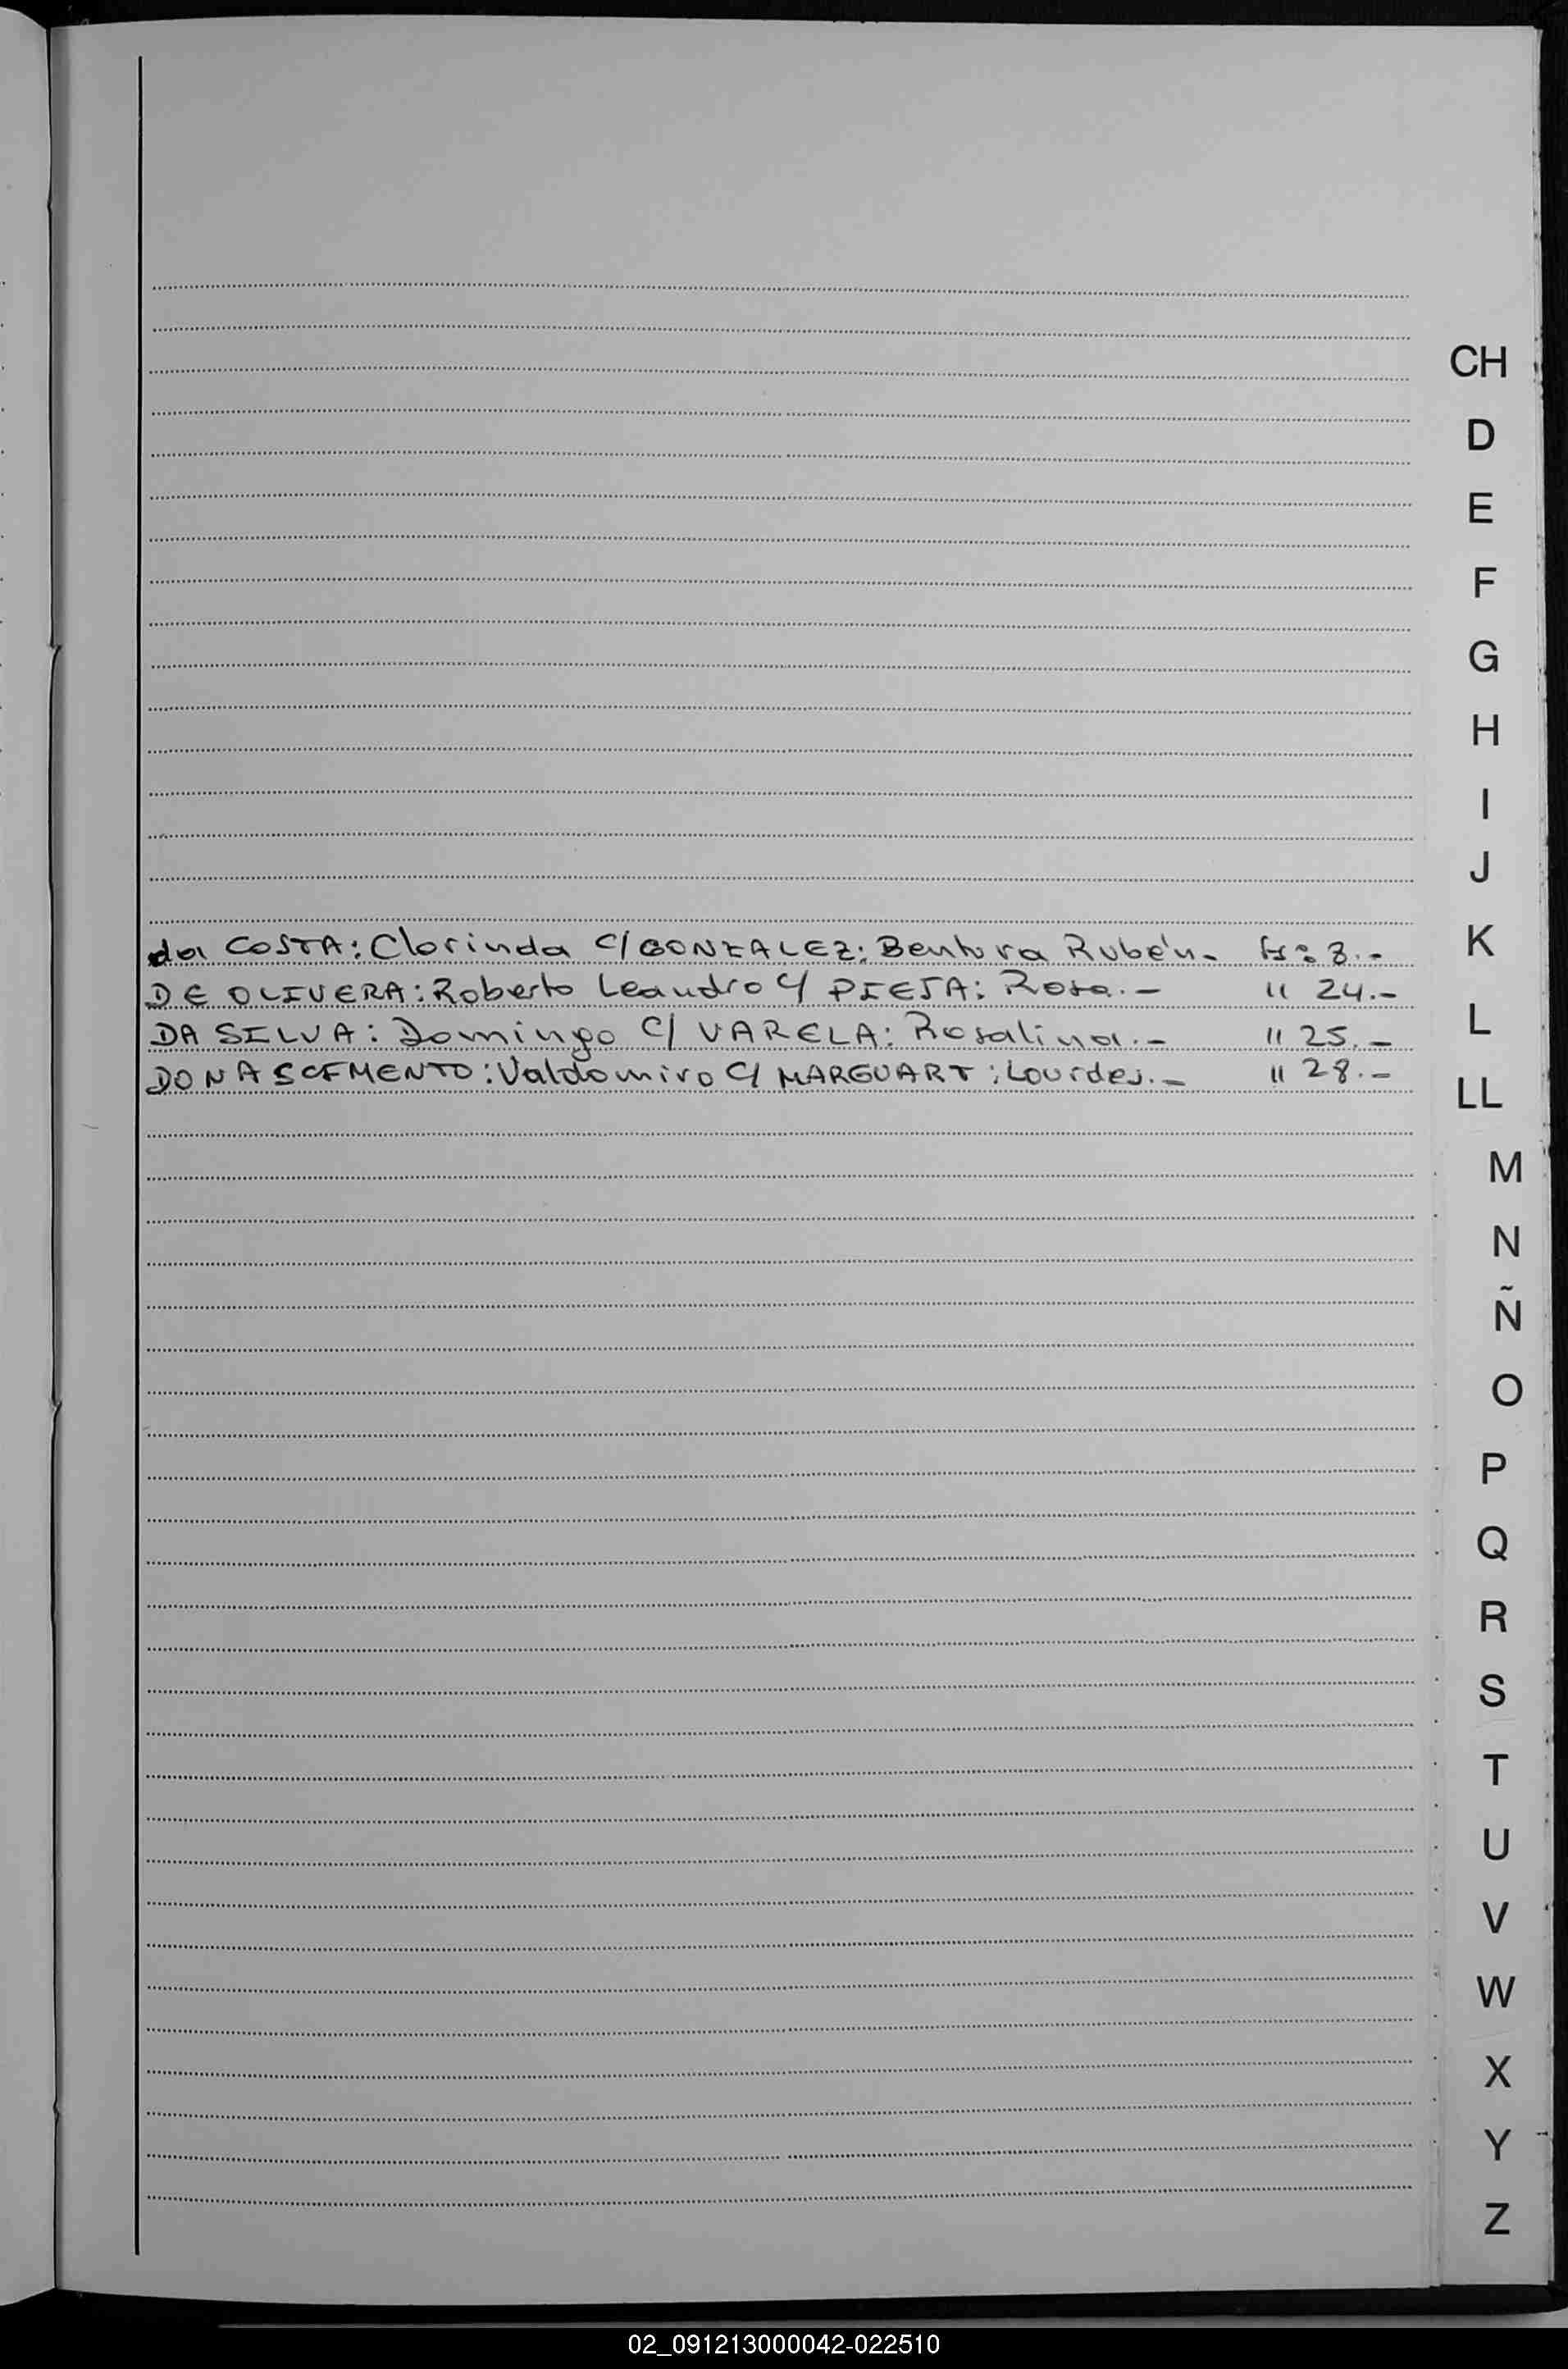 da COSTA: Clorinda c/ GONZALEZ: Bentura Rubén.- Fs: 3.-
DE OLIVERA: Roberto Leandro c/ PIESA: Rosa.- " 24.-
DA SILVA: Domingo c/ VARELA: Rosalina.- " 25.-
DO NASCEMENTO: Valdomiro c/ MARGUART: Lourdes.- " 28.-
CH
D
E
F
G
H
I
J
K
L
LL
M
N
Ñ
O
P
Q
R
S
T
U
V
W
X
Y
Z
02_091213000042-022510